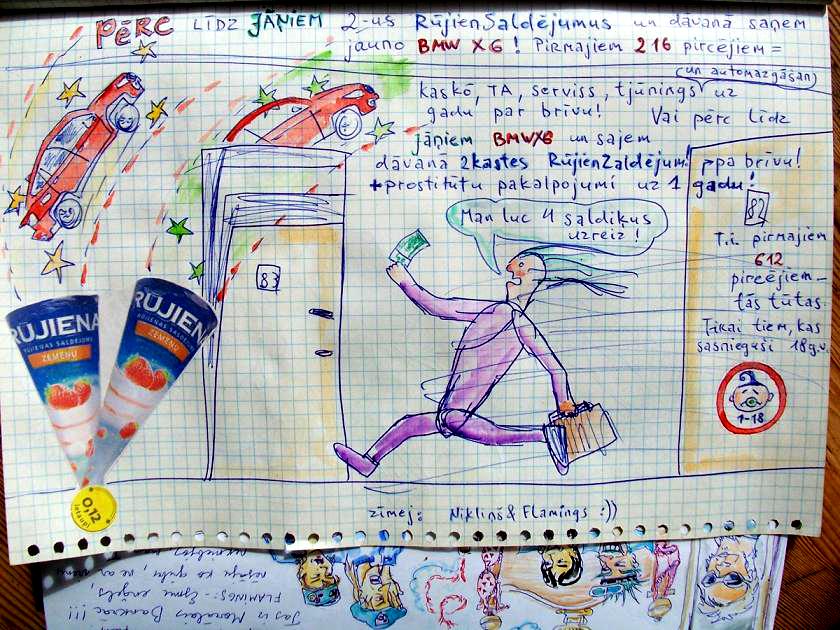 PĒRC LĪDZ JĀŅIEM 2-us RūjienSaldējumus un dāvanā saņem
jauno BMW X6! Pirmajiem 216 pircējiem =
(un automazgāšan)
kaskō, TA, serviss, tjūnings uz
gadu par brīvu! Vai pērc līdz
jāņiem BMWX6 un saņem
dāvanā 2kastes RūjienZaldējum! pa brīvu!
+prostitūtu pakalpojumi uz 1 gadu!
82
T.i. pirmajiem
612
pircējiem_
tās tūtas.
Tikai tiem, kas
sasnieguši 18g.v.
1-18
Man luc 4 saldiķus
uzreiz!
83
RŪJIENA
RŪJIENAS SALDĒJUMS
ZEMEŅU
RŪJIEN
ZEMEŅU
0,12
Ietaupi
zīmēj: Nikliņš & Flamings :))
FLAMINGS - Esmu eņģelis,
Tas ir Morālais Bankrots !!!